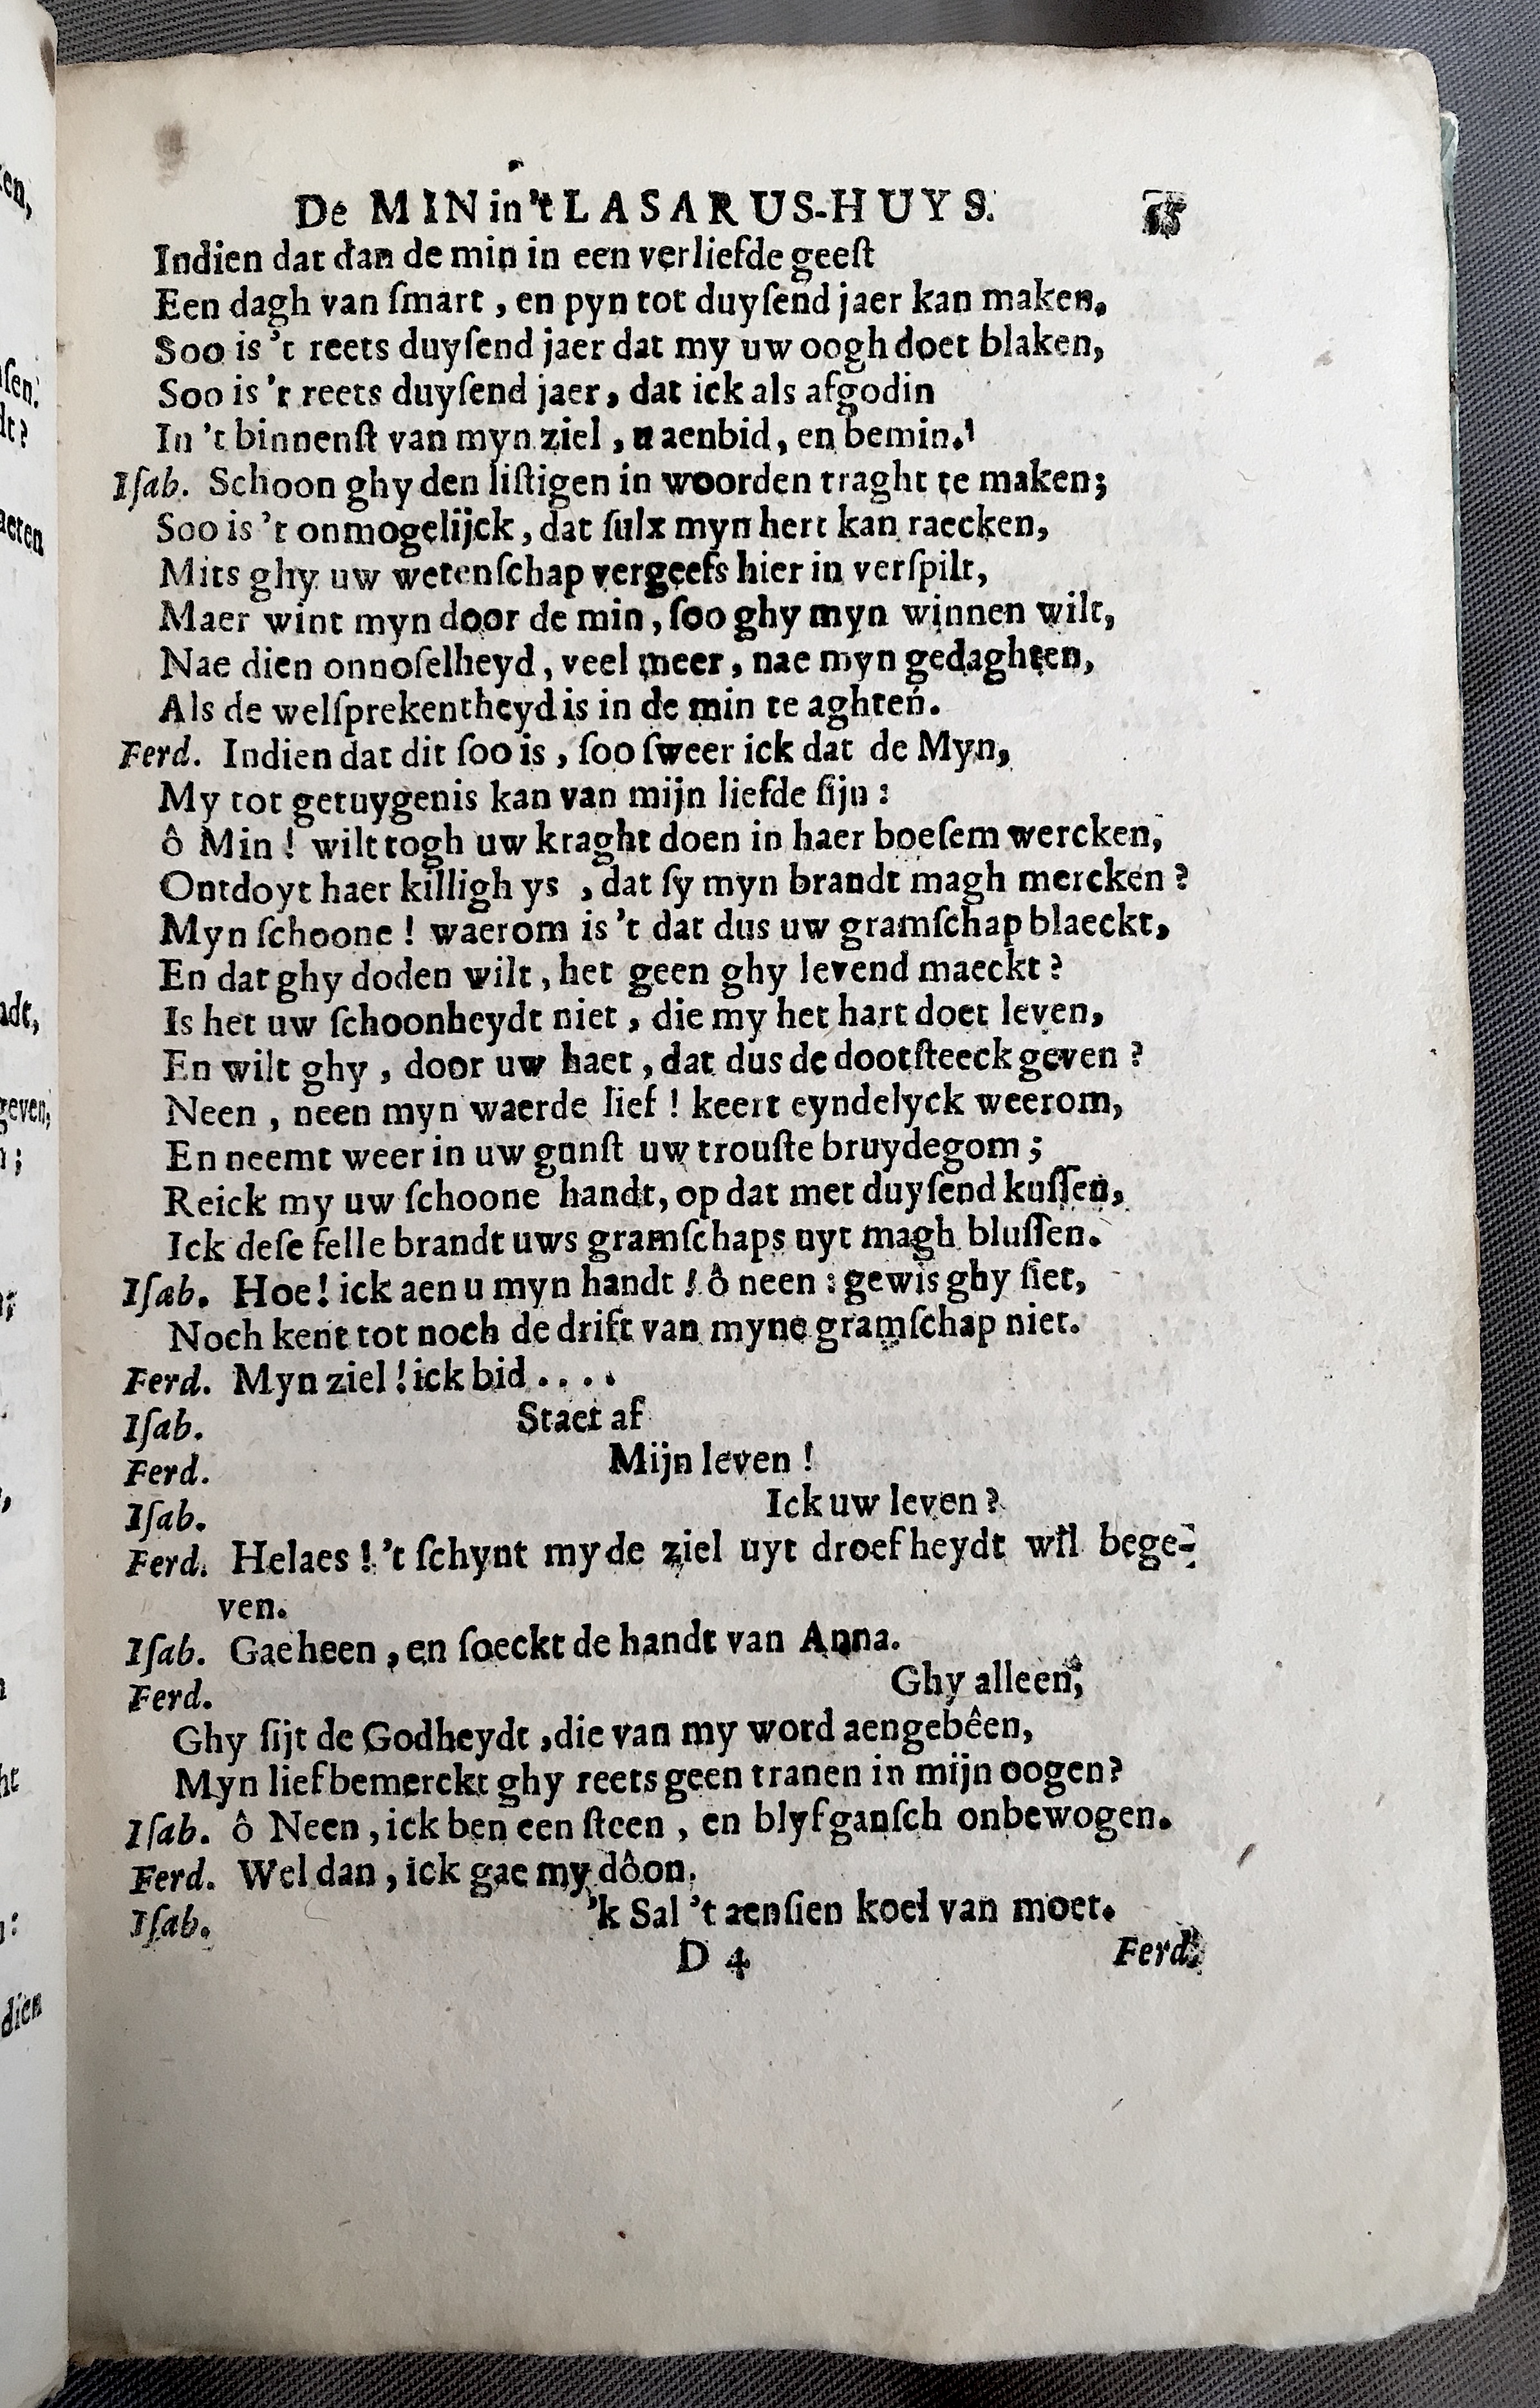 De MIN in 't LASARUS-HUYS.
Indien dat dan de min in een verliefde geeſt
Een dagh van ſmart, en pyn tot duyſend jaer kan maken,
Soo is 't reets duyſend jaer dat my uw oogh doet blaken,
Soo is 't reets duyſend jaer, dat ick als afgodin
In 't binnenſt van myn ziel, u aenbid, en bemin.
Iſab. Schoon ghy den liſtigen in woorden traght te maken;
Soo is 't onmogelijck, dat ſulx myn hert kan raecken,
Mits ghy uw wetenſchap vergeefs hier in verſpilt,
Maer wint myn door de min, ſoo ghy myn winnen wilt,
Nae dien onnoſelheyd, veel meer, nae myn gedaghten,
Als de welſprekentheyd is in de min te aghten.
Ferd. Indien dat dit ſoo is, ſoo ſweer ick dat de Myn,
My tot getuygenis kan van mijn liefde ſijn:
ô Min! wilt togh uw kraght doen in haer boeſem wercken,
Ontdoyt haer killigh ys, dat ſy myn brandt magh mercken?
Myn ſchoone! waerom is 't dat dus uw gramſchap blaeckt,
En dat ghy doden wilt, het geen ghy levend maeckt?
Is het uw ſchoonheydt niet, die my het hart doet leven,
En wilt ghy, door uw haet, dat dus de dootſteeck geven?
Neen, neen myn waerde lief! keert eyndelyck weerom,
En neemt weer in uw gunſt uw trouſte bruydegom;
Reick my uw ſchoone handt, op dat met duyſend kuſſen,
Ick deſe felle brandt uws gramſchaps uyt magh bluſſen.
Iſab. Hoe! ick aen u myn handt! ô neen: gewis ghy ſiet,
Noch kent tot noch de drift van myne gramſchap niet.
Ferd. Myn ziel! ick bid....
Iſab. Staet af
Ferd. Mijn leven!
Iſab. Ick uw leven?
Ferd. Helaes! 't ſchynt my de ziel uyt droefheydt wil bege-
ven.
Iſab. Gae heen, en ſoeckt de handt van Anna.
Ferd. Ghy alleen,
Ghy ſijt de Godheydt, die van my word aengebêen,
Myn lief bemerckt ghy reets geen tranen in mijn oogen?
Iſab. ô Neen, ick ben een ſteen, en blyf ganſch onbewogen.
Ferd. Wel dan, ick gae my dôon.
Iſab. 'k Sal 't aenſien koel van moet.
D 4 Ferd.